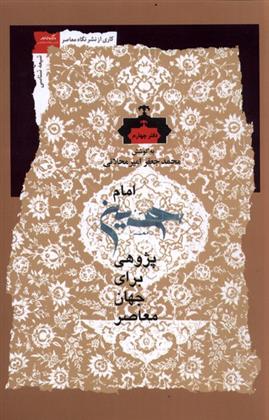 کاری از نشر نگاه معاصر
شیعه شناسی
دفتر چهارم
به کوشش
محمدجعفر امیرمحلاتی
امام
حسین
پژوهی
برای
جهان
معاصر